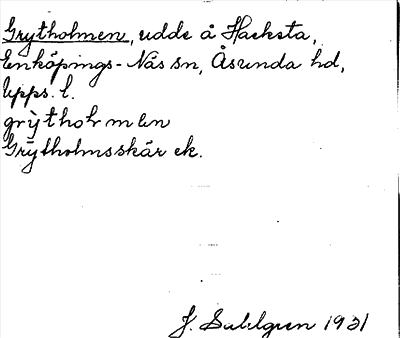 Grytholmen, udde å Hacksta,
Enköpings-Näs sn, Åsunda hd,
Upps. l.
grỳthoḷmen
Grytholmsskär ek.
J. Sahlgren 1931